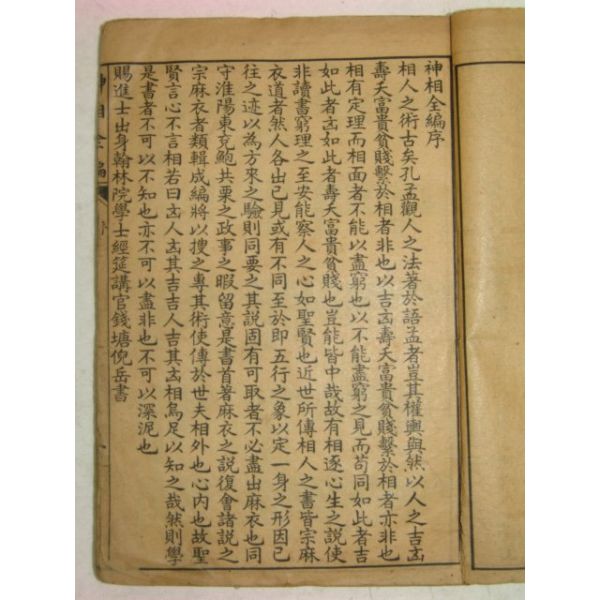 神相全編序
相人之術古矣孔孟觀人之法著於語孟者豈其權輿與然以人之吉凶
壽夭富貴貧賤繫於相者非也以吉凶壽夭富貴貧賤繫於相者亦非也
相有定理而相面者不能以盡窮也以不能盡窮之見而苟同如此者吉
如此者凶如此者壽夭富貴貧賤也豈能皆中哉故有相逐心生之說使
非讀書窮理之至安能察人之心如聖賢也近世所傳相人之書皆宗麻
衣道者然人各出己見或有不同至於即五行之象以定一身之形因已
往之迹以為方來之驗則同要之其說固有可取者不必盡出麻衣也同
守淮陽東兗鮑共栗之政事之暇留意是書首著麻衣之說復會諸說之
宗麻衣者類輯成編將以搜之專其術使傳於世夫相外也心內也故聖
賢言心不言相若曰凶人凶其吉吉人吉其凶相烏足以知之哉然則學
是書者不可以不知也亦不可以盡非也不可以深泥也
賜進士出身翰林院學士經筵講官錢塘倪岳書
神相全編
序
一